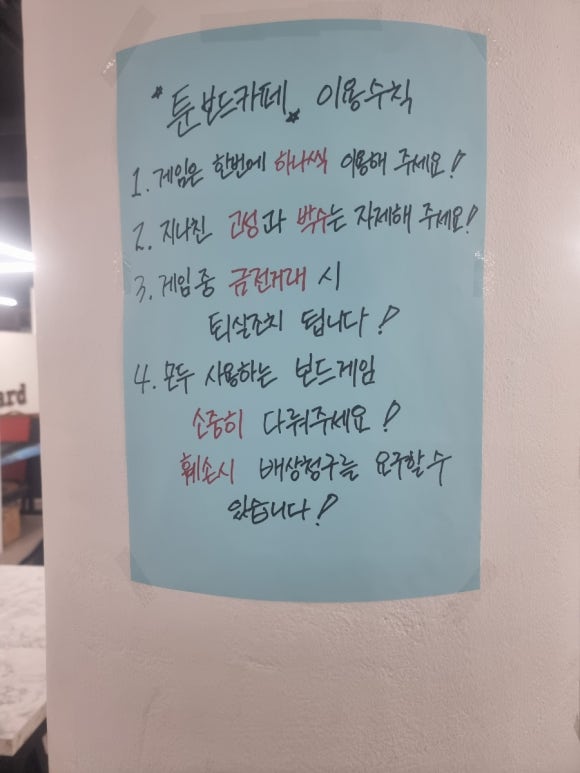 *툰보드카페* 이용수칙
1. 게임은 한번에 하나씩 이용해 주세요!
2. 지나친 고성과 박수는 자제해 주세요!
3. 게임 중 금전거래 시
퇴실조치 됩니다!
4. 모두 사용하는 보드게임
소중히 다뤄주세요!
훼손시 배상청구를 요구할 수
있습니다!
ard